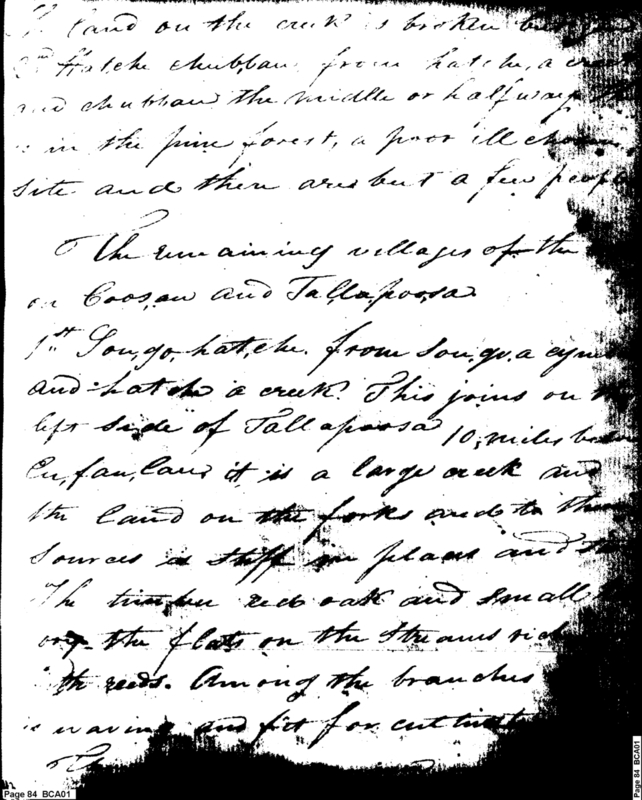 land on the creek is broken
Hatche chubbau from hatche, a
and chubbau the middle or half way
in the pine forest, a poor ill chosen
site and there are but a few people
The remaining villages of the
on Coosau and Tallapoosa
1st Sou,go,hat,che. from sou,go, a
and hatche a creek. This joins on
left side of Tallapoosa 10, miles
Eu,fau,lau, it is a large creek and
the land on the forks and to their
sources is stiff in places and
The timber red oak and small
the flats on the streams rich
reeds. Among the branches
is waving and fit for
Page 84 BCA01
Page 84 BCA01